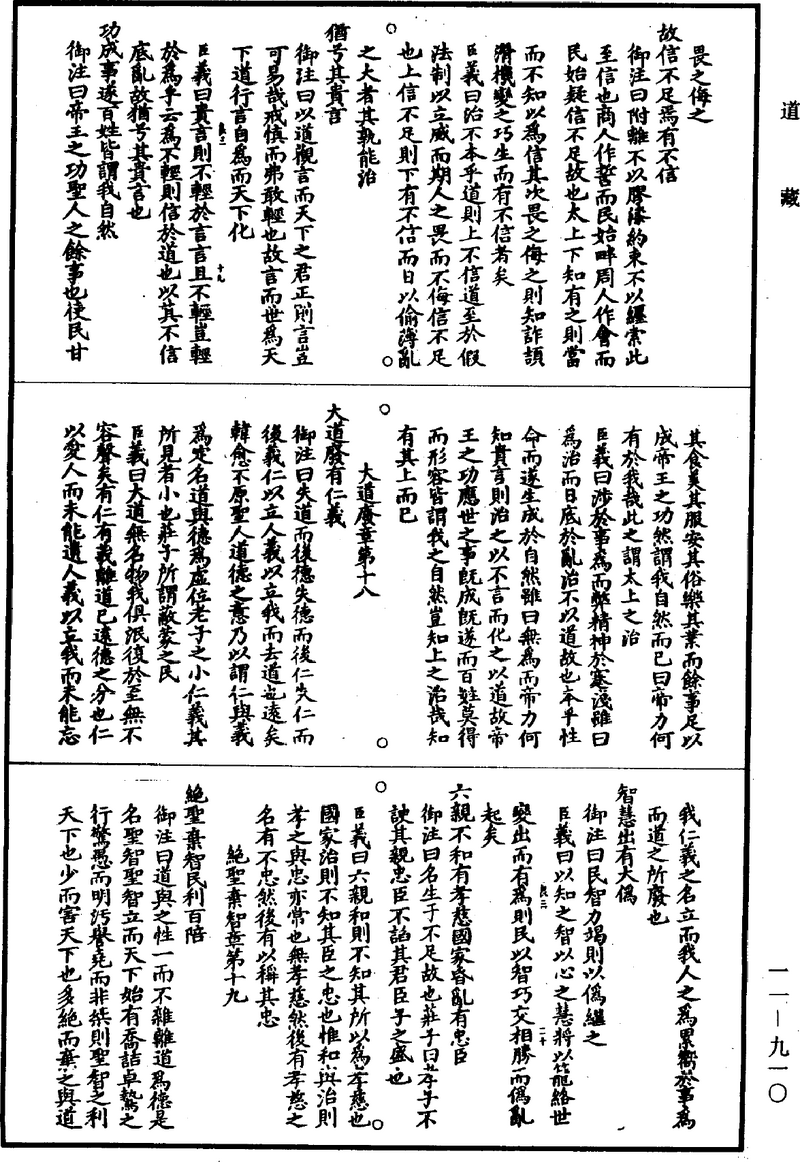 道藏
畏之侮之
故信不足焉有不信
御注曰附離不以膠漆約束不以纆索此
至信也商人作誓而民始畔周人作會而
民始疑信不足故也太上下知有之則當
而不知以為信其次畏之侮之則知詐頡
滑機變之巧生而有不信者矣
臣義曰治不本乎道則上不信道至於假
法制以立威而期人之畏而不侮信不足
也上信不足則下有不信而日以偷薄亂
之大者其孰能治
猶兮其貴言
御注曰以道觀言而天下之君正則言豈
可易哉戒慎而弗敢輕也故言而世為天
下道行言自為而天下化
臣義曰貴言則不輕於言言且不輕豈輕
於為乎云為不輕則信於道也以其不信
底亂故猶兮其貴言也
功成事遂百姓皆謂我自然
御注曰帝王之功聖人之餘事也使民甘
其食美其服安其俗樂其業而餘事足以
成帝王之功然謂我自然而已曰帝力何
有於我哉此之謂太上之治
臣義曰涉於事為而弊精神於蹇淺雖曰
為治而日底於亂治不以道故也本乎性
命而遂生成於自然雖曰無為而帝力何
知貴言則治之以不言而化之以道故帝
王之功應世之事既成既遂而百姓莫得
而形容皆謂我之自然豈知上之治哉知
有其上而已
大道廢章第十八
大道廢有仁義
御注曰失道而後德失德而後仁失仁而
後義仁以立人義以立我而去道也遠矣
韓愈不原聖人道德之意乃以謂仁與義
為定名道與德為虛位老子之小仁義其
所見者小也莊子所謂蔽蒙之民
臣義曰大道無名物我俱泯復於至無不
容聲矣有仁有義離道已遠德之分也仁
以愛人而未能遺人義以立我而未能忘
我仁義之名立而我人之為累嚮於事為
而道之所廢也
智慧出有大偽
御注曰民智力竭則以偽繼之
臣義曰以知之智以心之慧將以籠絡世
變出而有為則民以智巧交相勝而偽亂
起矣
六親不和有孝慈國家昏亂有忠臣
御注曰名生于不足故也莊子曰孝子不
諛其親忠臣不諂其君臣子之盛也
臣義曰六親和則不知其所以為孝慈也
國家治則不知其臣之忠也惟和與治則
孝之與忠亦常也無孝慈然後有孝慈之
名有不忠然後有以稱其忠
絕聖棄智章第十九
絕聖棄智民利百陪
御注曰道與之性一而不雜離道為德是
名聖智聖智立而天下始有喬詰卓鷙之
行驚愚而明汚譽堯而非桀則聖智之利
天下也少而害天下也多絕而棄之與道
一一—九一〇